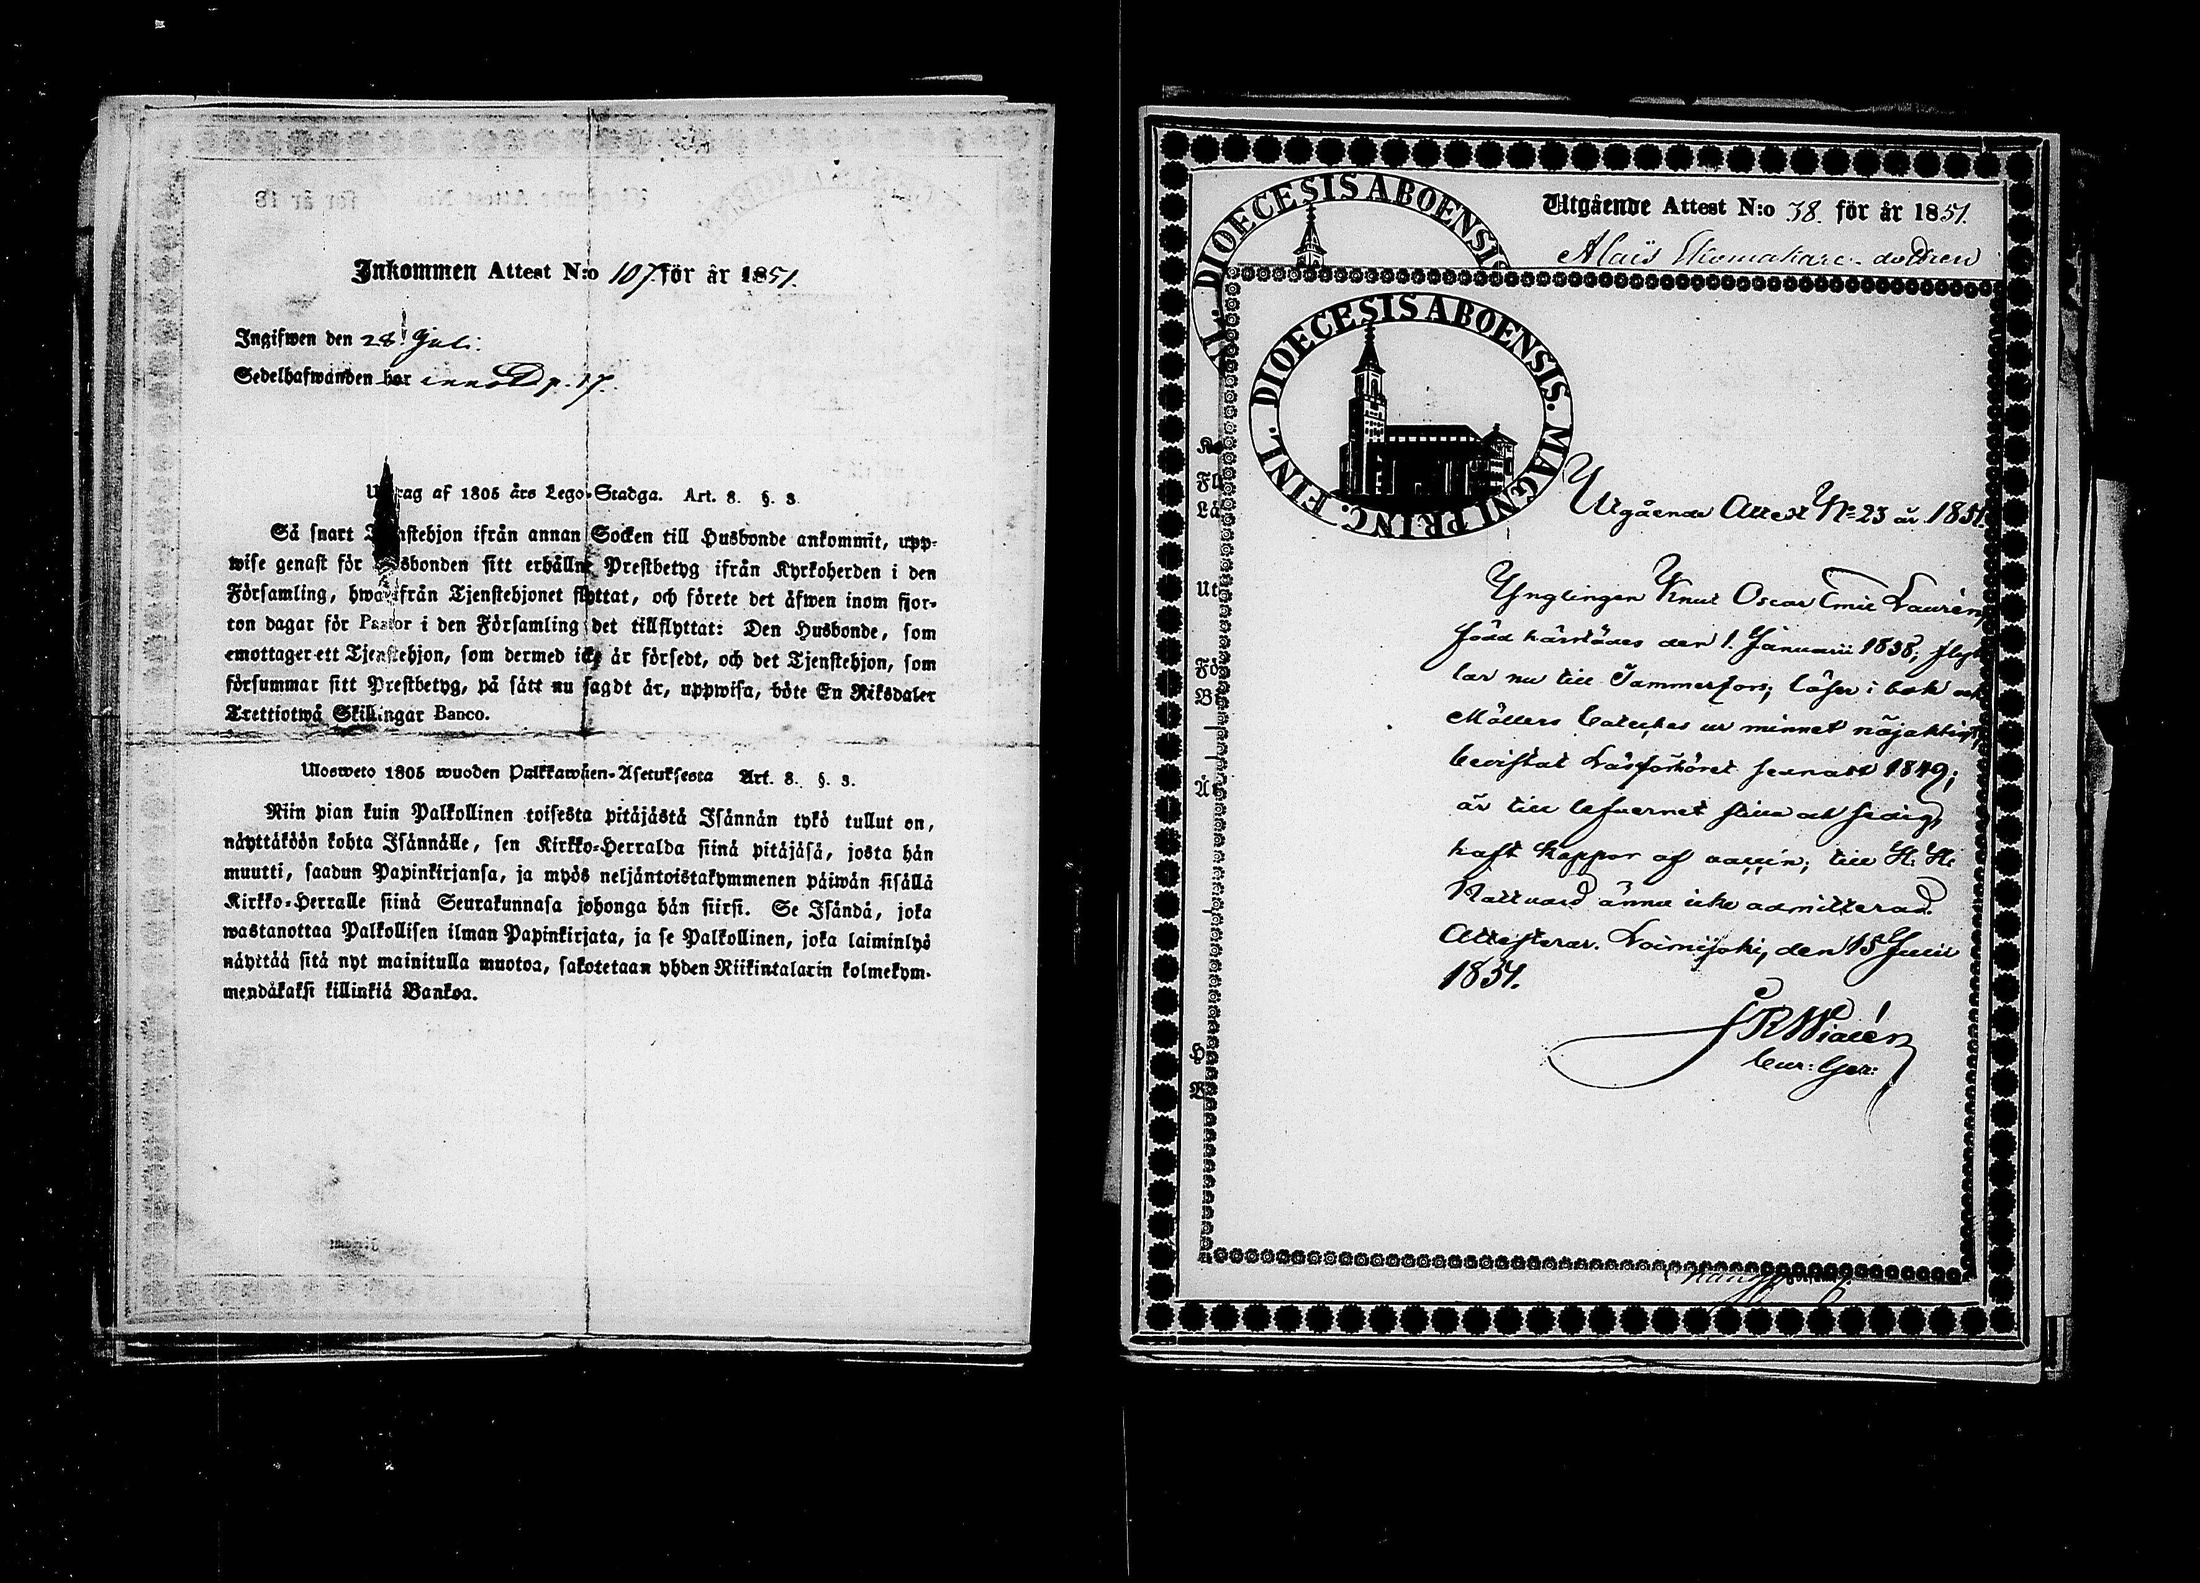 Inkommen Attest N:o 107. för år 1851.
Ingifwen den 28 Juli.
Sedelhafwanden har p. 17.
Utdrag af 1805 års Lego-Stadga. Art. 8. §. 3.
Så snart Tjenstehjon ifrån annan Socken till Husbonde ankommit, upp-
wise genast för Husbonden sitt erhållne Prestbetyg ifrån Kyrkoherden i den
Församling, hwarifrån Tjenstehjonet flyttat, och förete det äfwen inom fjor-
ton dagar för Pastor i den Församling det tillflyttat: Den Husbonde, som
emottager ett Tjenstehjon, som dermed icke är försedt, och det Tjenstehjon, som
försummar sitt Prestbetyg, på sätt nu sagdt är, uppwisa, böte En Riksdaler
Trettiotwå Skillingar Banco.
Ulosweto 1805 wuoden Palkkawäen-Asetuksesta Art. 8. §. 3.
Niin pian kuin Palkollinen toisesta pitäjästä Isännän tykö tullut on,
näyttäköön kohta Isännälle, sen Kirkko-Herralda siinä pitäjäsä, josta hän
muutti, saadun Papinkirjansa, ja myös neljäntoistakymmenen päiwän sisällä
Kirkko-Herralle siinä Seurakunnasa johonga hän siirsi. Se Isändä, joka
wastanottaa Palkollisen ilman Papinkirjata, ja se Palkollinen, joka laiminlyö
näyttää sitä nyt mainitulla muotoa, sakotetaan yhden Riikintalarin kolmekym-
mendäkaksi killinkiä Bankoa.
DIOECESIS ABOENSIS
Utgående Attest N:o 38. för år 1851.
DIOECESIS ABOENSIS. MAGNI PRINC. FINL.
Utgående Attest No 23 år 1851.
Ynglingen Knut Oscar Emil Laurén,
född härstädes den 1. Januarii 1838, flyt
tar nu till Tammerfors; läser i bok och
Möllers Cateches ur minnet nöjaktigt,
bevistat Läsförhöret sednast 1849;
är till lefvernet stilla och sedig,
haft koppor af vaccin; till H. H.
Nattvard ännu icke admitterad.
Attesterar. Loimijoki, den 15 Juni
1851.